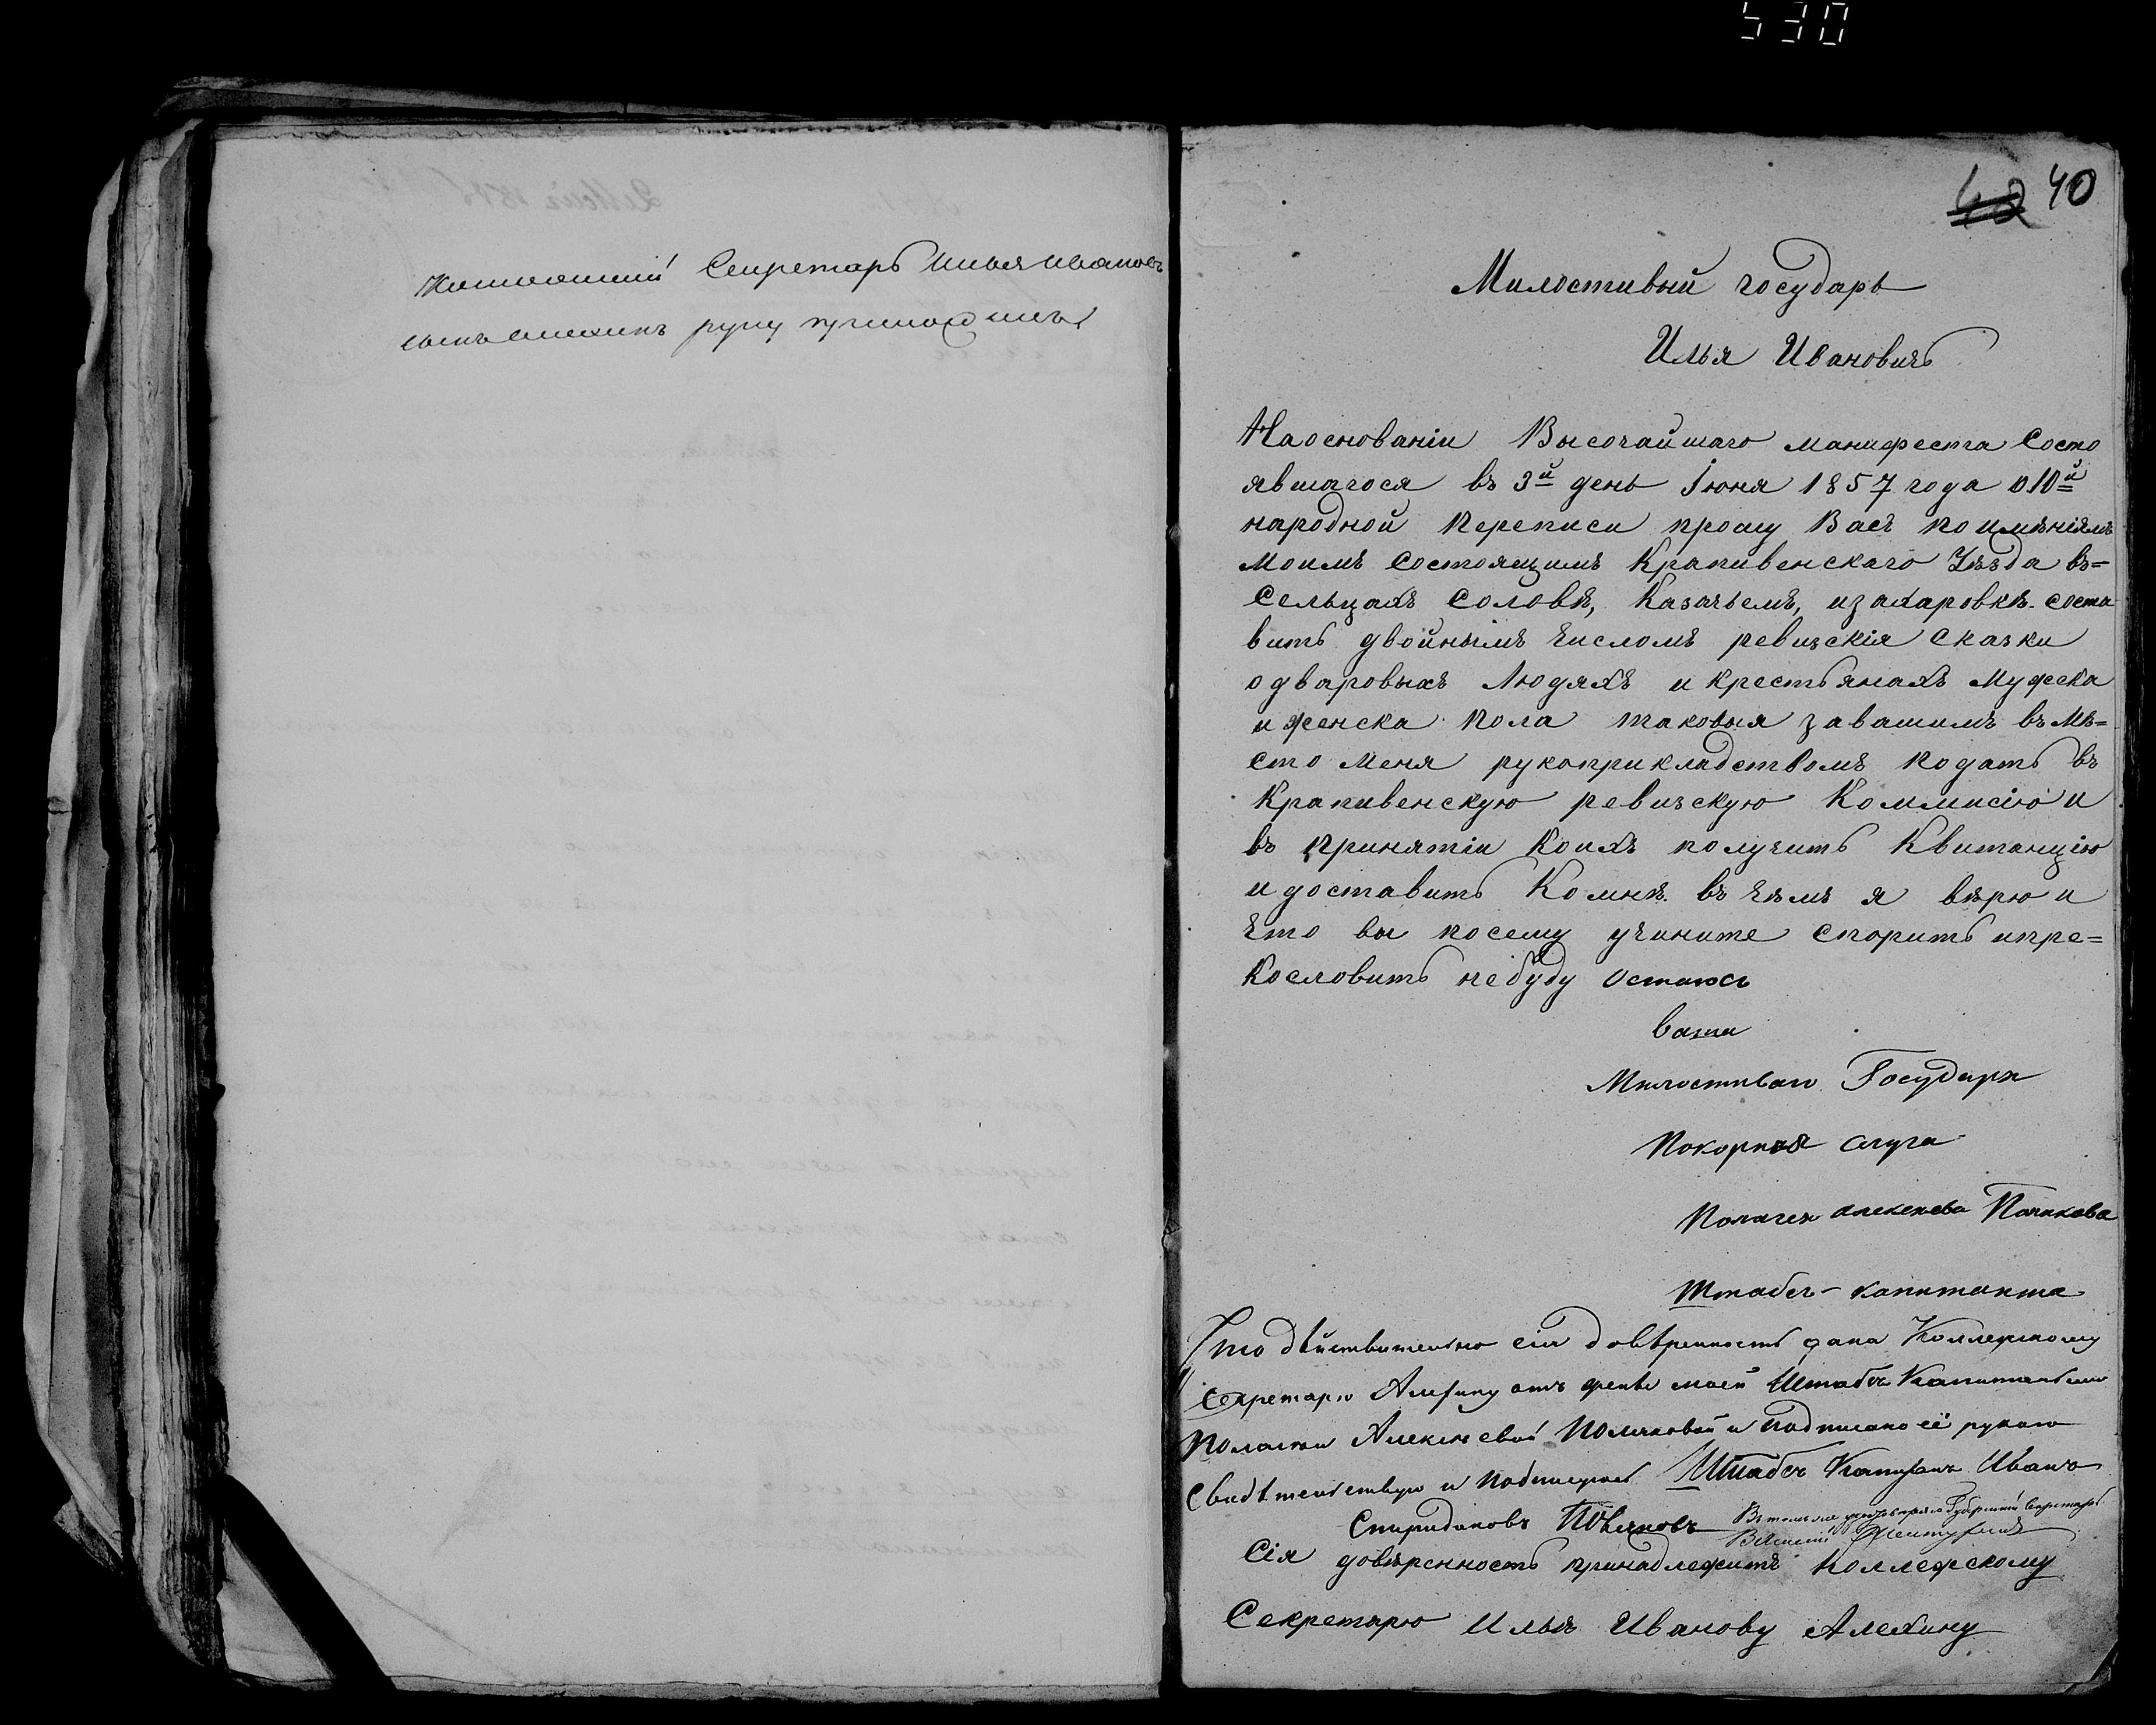 530
Коллежскій Секретарь Илья Ивановъ
сынъ Алехинъ руку приложилъ
42 40
Милостивый государь
Илья Ивановичь
На основаніи Высочайшаго манифеста состо
явшагося въ 3й день Іюня 1857 года о 10й
народной переписи прошу Васъ по имѣніямъ
моимъ состоящимъ Крапивенскаго Уѣзда въ=
Сельцахъ Соловѣ, Казачьемъ, и захаровкѣ соста
вить двойнымъ числомъ ревизскія сказки
о дваровыхъ Людяхъ и крестьянахъ мужска
и женска пола таковыя за вашимъ въ мѣ=
сто меня рукоприкладствомъ подать въ
Крапивенскую ревизскую Коммисію и
въ принятіи коихъ получить Квитанцію
и доставить Ко мнѣ. въ чѣмъ я вѣрю и
что вы посему учините спорить и пре=
кословить небуду остаюсь
ваша
Милостиваго Государя
Покорная слуга
Полагея Алексеева Полякова
Штабсъ-капитанша
Что дѣйствительно сія довѣренность дана Коллежскому
Секретарю Алехину отъ жены моей Штабсъ Капитанши
Полагеи Алексѣевой Поляковой и подписано её рукою
свидѣтельствую и подписуюсь Штабсъ Капитанъ Иванъ
Спиридоновъ Поляковъ
Губернскій Секретарь
Сія довѣренность принадлежитъ Коллежскому
Секретарю Ильѣ Иванову Алехину